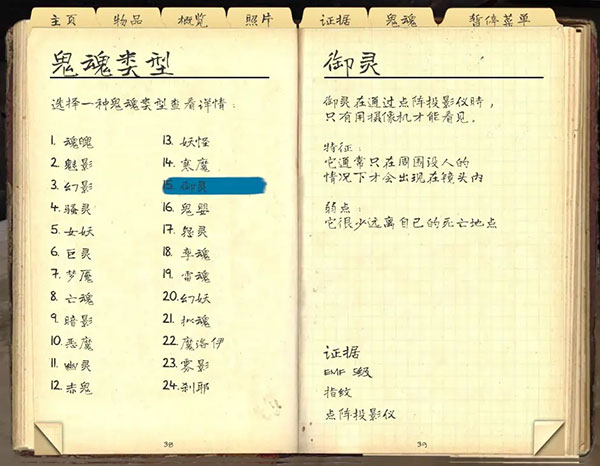 主页 物品 概览 照片 证据 鬼魂 暂停菜单
鬼魂类型
选择一种鬼魂类型查看详情：
1. 魂魄
2. 魅影
3. 幻影
4. 骚灵
5. 女妖
6. 巨灵
7. 梦魇
8. 亡魂
9. 暗影
10. 恶魔
11. 幽灵
12. 赤鬼
13. 妖怪
14. 寒魔
15. 御灵
16. 鬼婴
17. 怨灵
18. 孪魂
19. 雷魂
20. 幻妖
21. 拟魂
22. 魔洛伊
23. 雾影
24. 刹耶
38
御灵
御灵在通过点阵投影仪时，
只有用摄像机才能看见。
特征：
它通常只在周围没人的
情况下才会出现在镜头内
弱点：
它很少远离自己的死亡地点
证据
EMF 5级
指纹
点阵投影仪
39